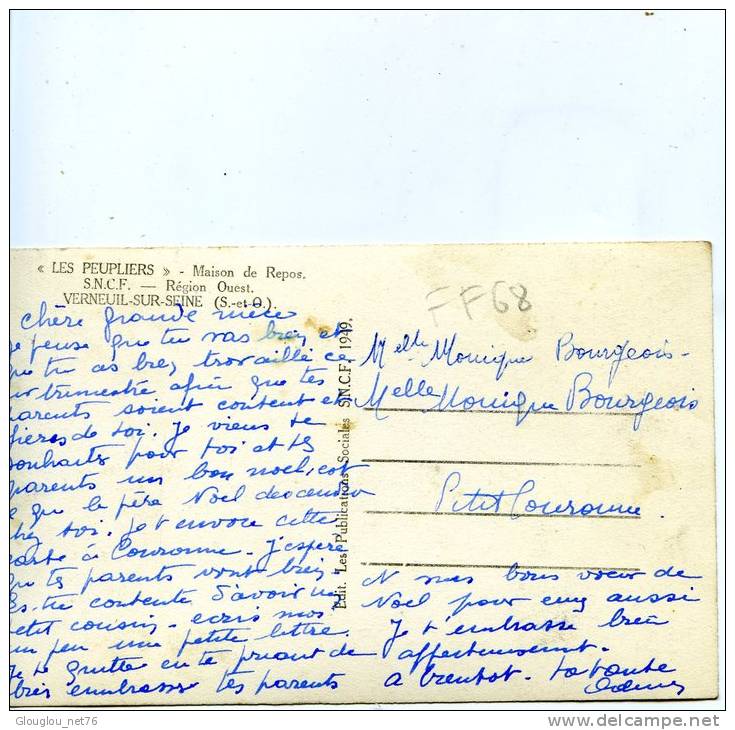 « LES PEUPLIERS » - Maison de Repos.
S.N.C.F. — Région Ouest.
VERNEUIL-SUR-SEINE (S.-et-O.).
FF68
chère grande nièce
je pense que tu vas bien et
que tu as bien travaillé ce
trimestre afin que tes
parents soient content et
fières de toi. Je viens te
souhaiter pour toi et tes
parents un bon noel,
que le père Noel descendra
chez toi. Je t envoie cette
carte à Couronne. J'espère
que tes parents vont bien.
Es-tu contente d'avoir un
petit cousin. ecris moi
un peu une petite lettre.
Je te quitte en te priant de
bien embrasser tes parents
Edit. Les Publications Sociales S.N.C.F. 1949.
Melle Monique Bourgeois-
Melle Monique Bourgeois
Petit Couronne.
bons voeux de
Noel pour eux aussi
Je t'embrasse bien
affectueusement.
A bientot. ta tante
Glouglou_net76
delcampe.net